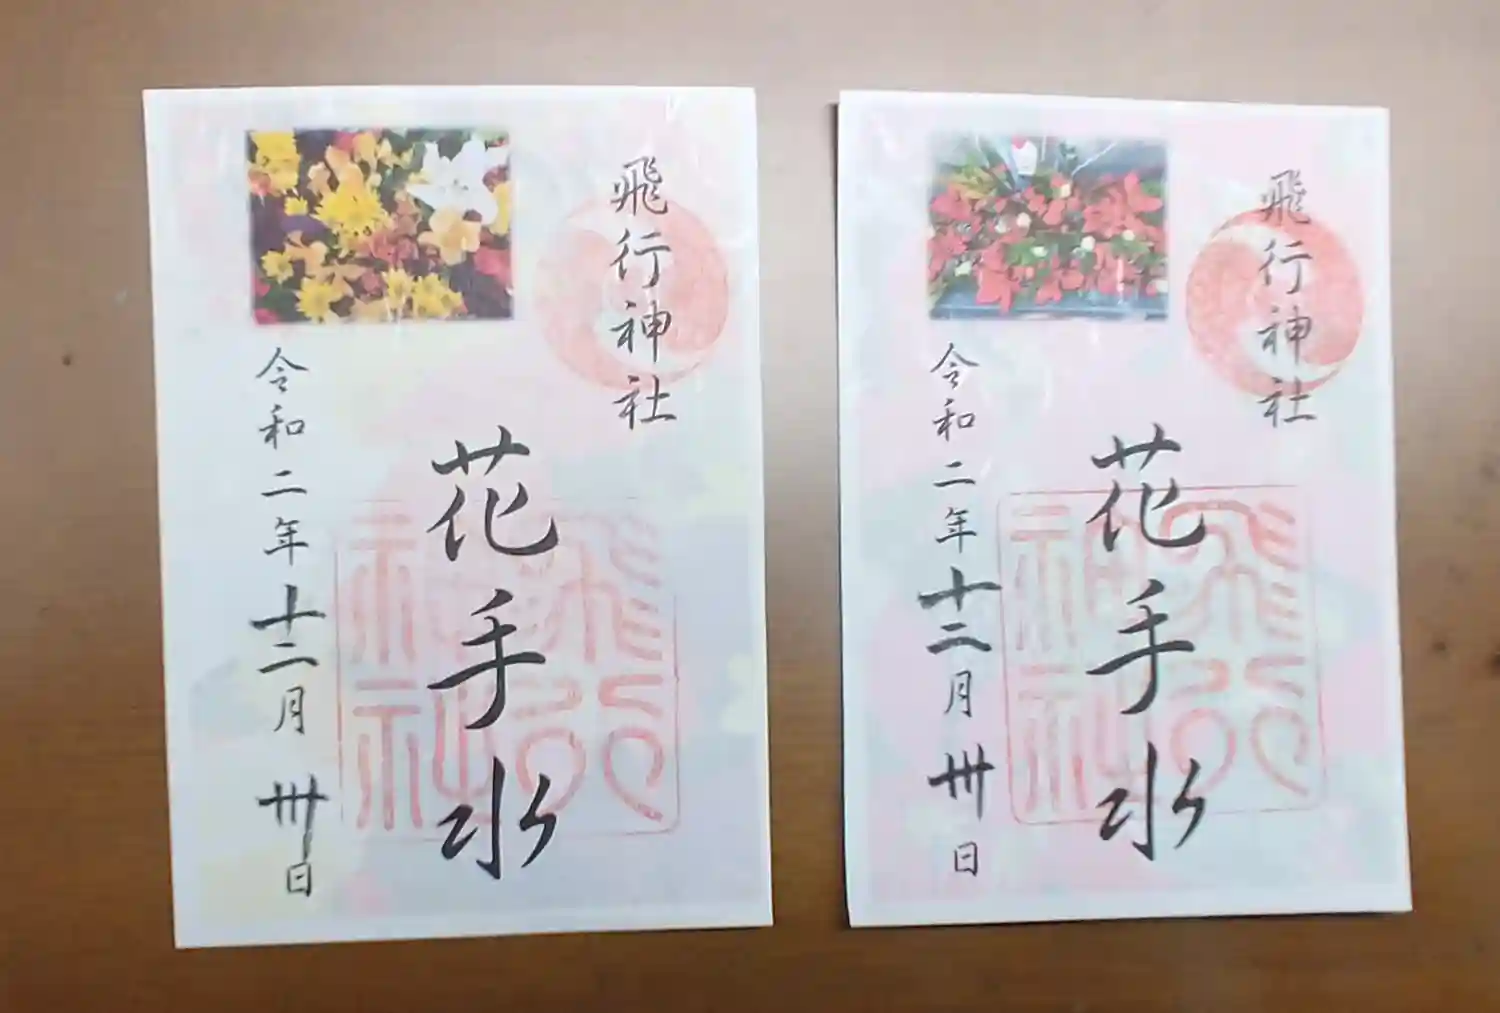 飛行神社
花手水
令和二年十二月卅日
飛行神社
飛行神社
花手水
令和二年十二月卅日
飛行神社